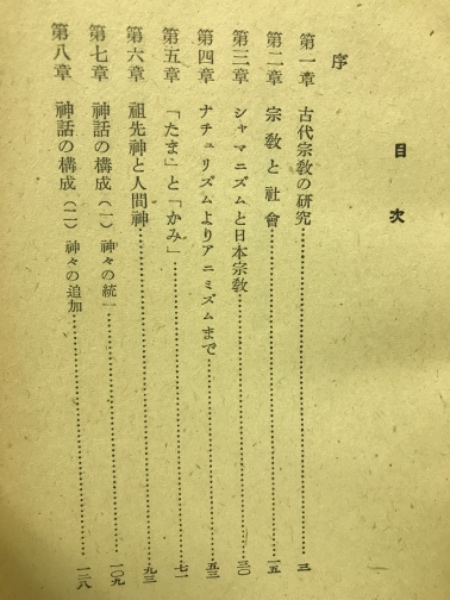 目次
序
第一章 古代宗教の研究……三
第二章 宗教と社會……一五
第三章 シャマニズムと日本宗教……三〇
第四章 ナチュリズムよりアニミズムまで……五三
第五章 「たま」と「かみ」……七一
第六章 祖先神と人間神……九三
第七章 神話の構成（一）神々の統一……一〇九
第八章 神話の構成（二）神々の追加……一二八